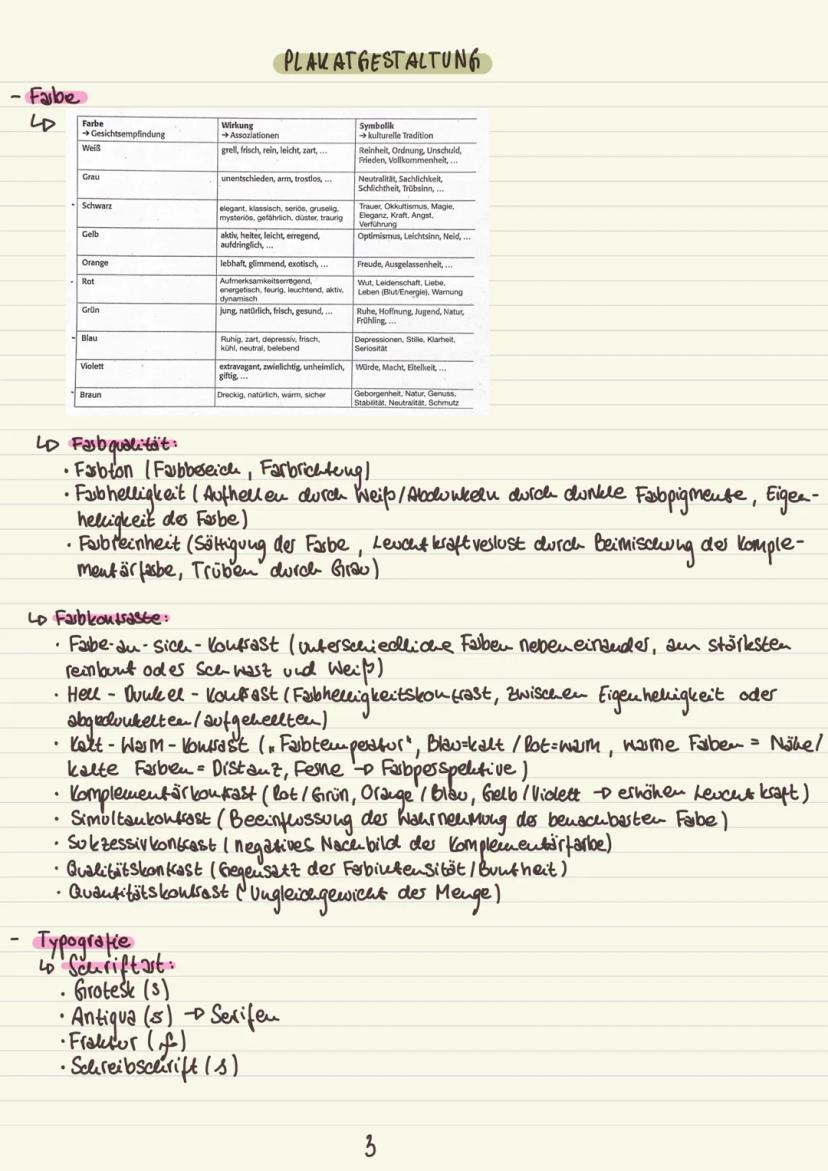 PLAKATGESTALTUNG
- Farbe
↳
Farbe → Gesichtsempfindung | Wirkung → Assoziationen | Symbolik → kulturelle Tradition
Weiß | grell, frisch, rein, leicht, zart, ... | Reinheit, Ordnung, Unschuld, Frieden, Vollkommenheit, ...
Grau | unentschieden, arm, trostlos, ... | Neutralität, Sachlichkeit, Schlichtheit, Trübsinn, ...
Schwarz | elegant, klassisch, seriös, gruselig, mysteriös, gefährlich, düster, traurig | Trauer, Okkultismus, Magie, Eleganz, Kraft, Angst, Verführung
Gelb | aktiv, heiter, leicht, erregend, aufdringlich, ... | Optimismus, Leichtsinn, Neid, ...
Orange | lebhaft, glimmend, exotisch, ... | Freude, Ausgelassenheit, ...
Rot | Aufmerksamkeitserregend, energetisch, feurig, leuchtend, aktiv, dynamisch | Wut, Leidenschaft, Liebe, Leben (Blut/Energie), Warnung
Grün | jung, natürlich, frisch, gesund, ... | Ruhe, Hoffnung, Jugend, Natur, Frühling, ...
Blau | Ruhig, zart, depressiv, frisch, kühl, neutral, belebend | Depressionen, Stille, Klarheit, Seriosität
Violett | extravagant, zwielichtig, unheimlich, giftig, ... | Würde, Macht, Eitelkeit, ...
Braun | Dreckig, natürlich, warm, sicher | Geborgenheit, Natur, Genuss, Stabilität, Neutralität, Schmutz
↳ Farbqualität:
· Farbton (Farbbereich, Farbrichtung)
· Farbhelligkeit (Aufhellen durch Weiß/Abdunkeln durch dunkle Farbpigmente, Eigen-
helligkeit der Farbe)
· Farbreinheit (Sättigung der Farbe, Leuchtkraftverlust durch Beimischung der Komple-
mentärfarbe, Trüben durch Grau)
↳ Farbkontraste:
· Farbe-an-sich-Kontrast (unterschiedliche Farben nebeneinander, am stärksten
reinbunt oder Schwarz und Weiß)
· Hell-Dunkel-Kontrast (Farbhelligkeitskontrast, zwischen Eigenhelligkeit oder
abgedunkelten/aufgehellten)
· Kalt-Warm-Kontrast („Farbtemperatur", Blau=kalt / Rot=warm, warme Farben = Nähe/
kalte Farben = Distanz, Ferne → Farbperspektive)
· Komplementärkontrast (Rot/Grün, Orange/Blau, Gelb/Violett → erhöhen Leuchtkraft)
· Simultankontrast (Beeinflussung der Wahrnehmung der benachbarten Farbe)
· Sukzessivkontrast (negatives Nachbild der Komplementärfarbe)
· Qualitätskontrast (Gegensatz der Farbintensität/Buntheit)
· Quantitätskontrast (Ungleichgewicht der Menge)
- Typografie
↳ Schriftart:
· Grotesk (s)
· Antiqua (s) → Serifen
· Fraktur (f)
· Schreibschrift (s)
3